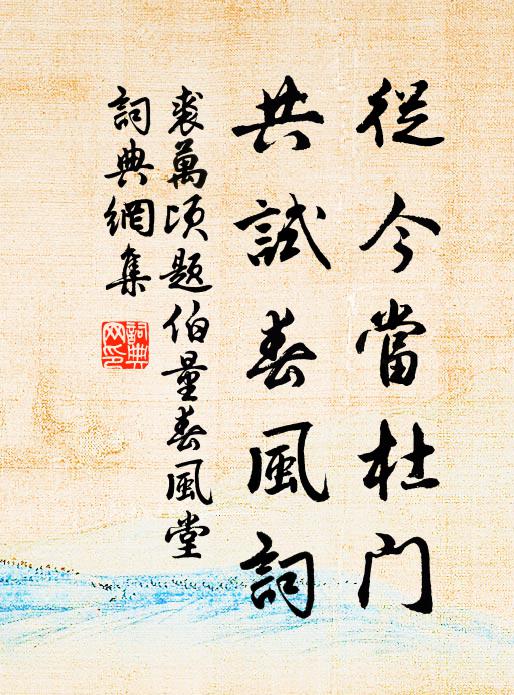 從今當杜門
共試春風詞
裘萬頃題伯量春風堂
詞典網集
詞典網印